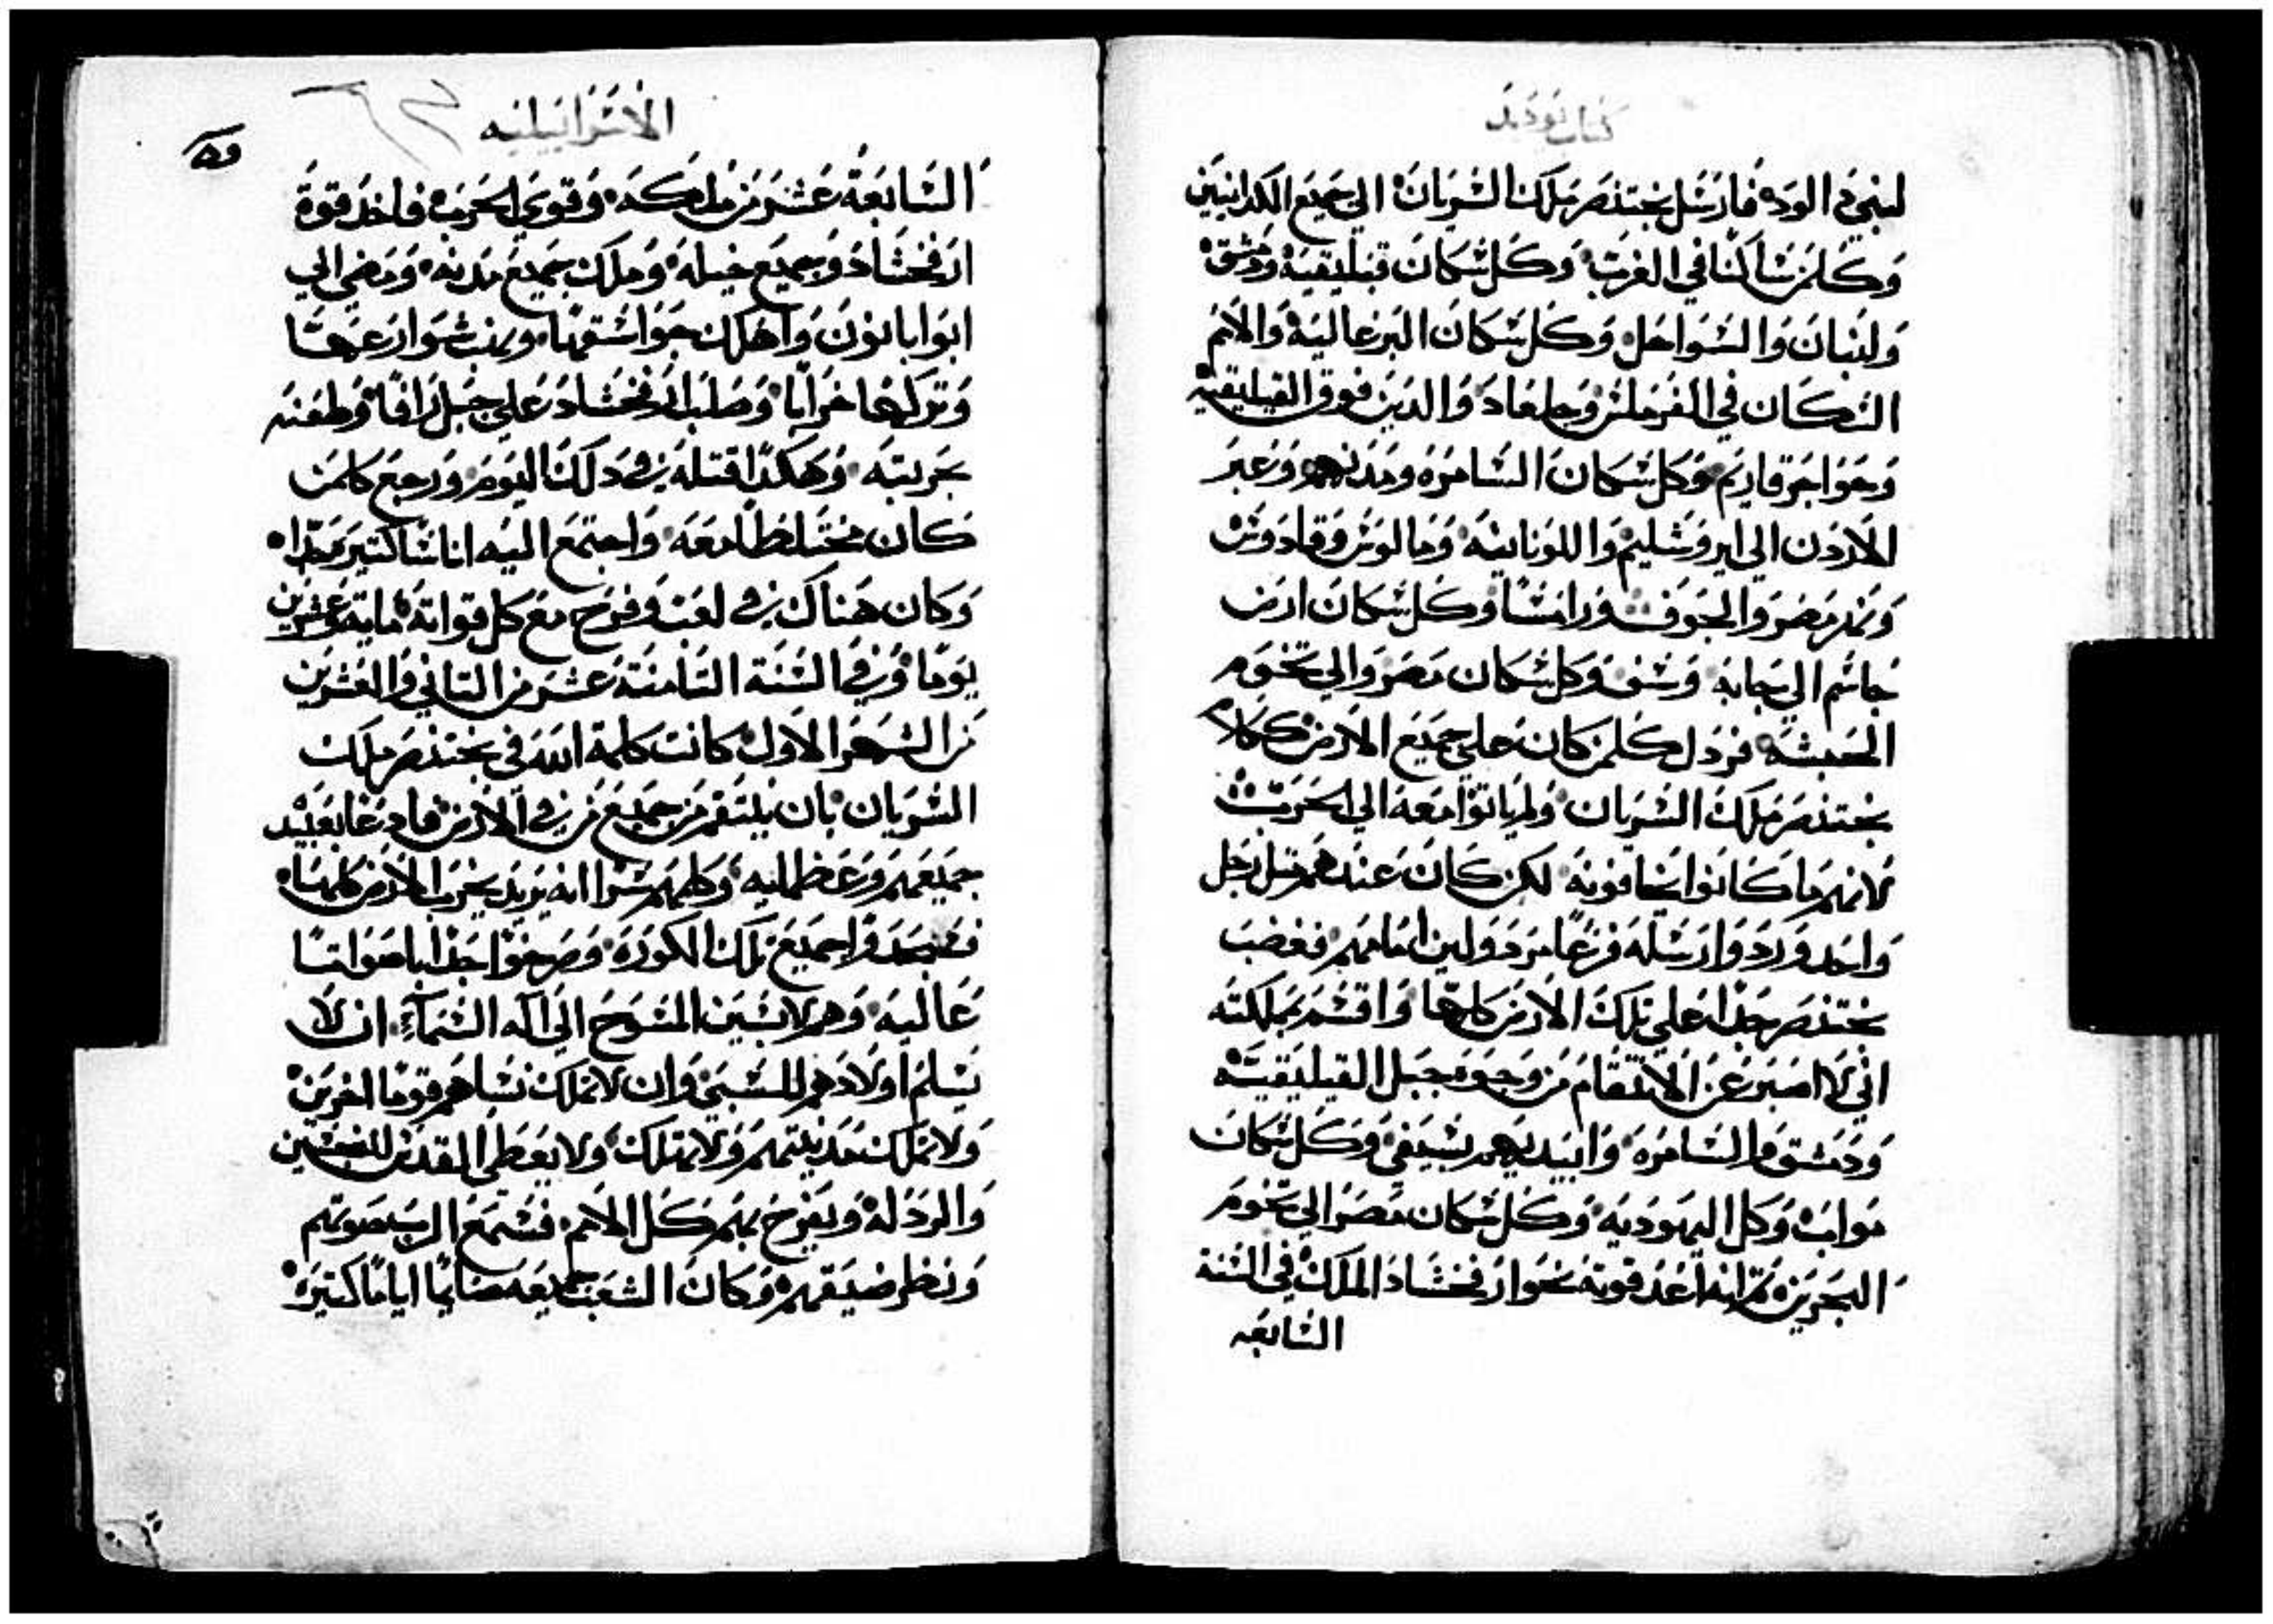 كتاب يوديد
لبني الود فارسل بختنصر ملك السريان الي جميع الكدانيين
وكلمن ساكنا في الغرب وكل سكان قيليقيه ودمشق
ولبنان والسواحل وكل سكان البرعاليه والامم
السكان في الفرملس وجلعاد والدين فوق القيليقيه
وحوا جرقاديم وكل سكان السامره ومدنهم وعبر
الاردن الي ايروشليم واللونانيه وحالوس وقادوس
ونهر مصر والجوف ورامسا وكل سكان ارض
جاشم الي بجانه وشف وكل سكان مصر والي تخوم
الحبشه فردل كلمن كان علي جميع الارض كلام
بختنصر ملك السريان ولم ياتوا معه الي الحرب
لانهم ما كانوا يخافونه لكن كان عندهم متل رجل
واحد وردوا رسله فزعا مردولين امامهم فغضب
بختنصر جدا علي تلك الارض كلها واقسم بمملكته
اني لا اصبر عن الانتقام من وجوه جبل القيليقيه
ودمشق والسامره وابيدهم بسيفي وكل سكان
مواب وكل اليهوديه وكل سكان مصر الي تخوم
البحرين تم انه اعد قوته نحو ارفخشاد الملك في السنة
السابعه
الاسراييليه
السابعة عشر من ملكه وقوي الحرب فاخد قوة
ارفخشاد وجميع خيله وملك جميع مدنه ومضي الي
ابوابانون واهلك جواسقها ونهب شوارعها
وتركها خرابا وصلب ارفخشاد علي جبل رافا وطعنه
بحربته وهكدا قتله في دلك اليوم ورجع كلمن
كان مختلطا معه واجتمع اليه اناسا كتير جدا
وكان هناك في لعب وفرح مع كل قواته مايه وعشرين
يوما وفي السنة التامنة عشر من التاني والعشرين
من الشهر الاول كانت كلمة الله في بختنصر ملك
السريان بان ينتقم من جميع من في الارض فادعا بعبيد
جميعهم وعظمايه وكلمهم سرا انه يريد يخرب الارض كلها
فقصدوا جميع تلك الكوره وصرخوا جدا باصواتا
عاليه وهم لابسين المسوح الي اله السماء ان لا
يسلم اولادهم للسبي وان لا تملك نساهم قوما اخرين
ولا تملك مدينتهم ولا تهلك ولا يعطي المقدس للنجسين
والردله ويفرح بهم كل الامم فسمع الرب صوتهم
ونظر ضيقهم وكان الشعب جميعه صايما اياما كتيره